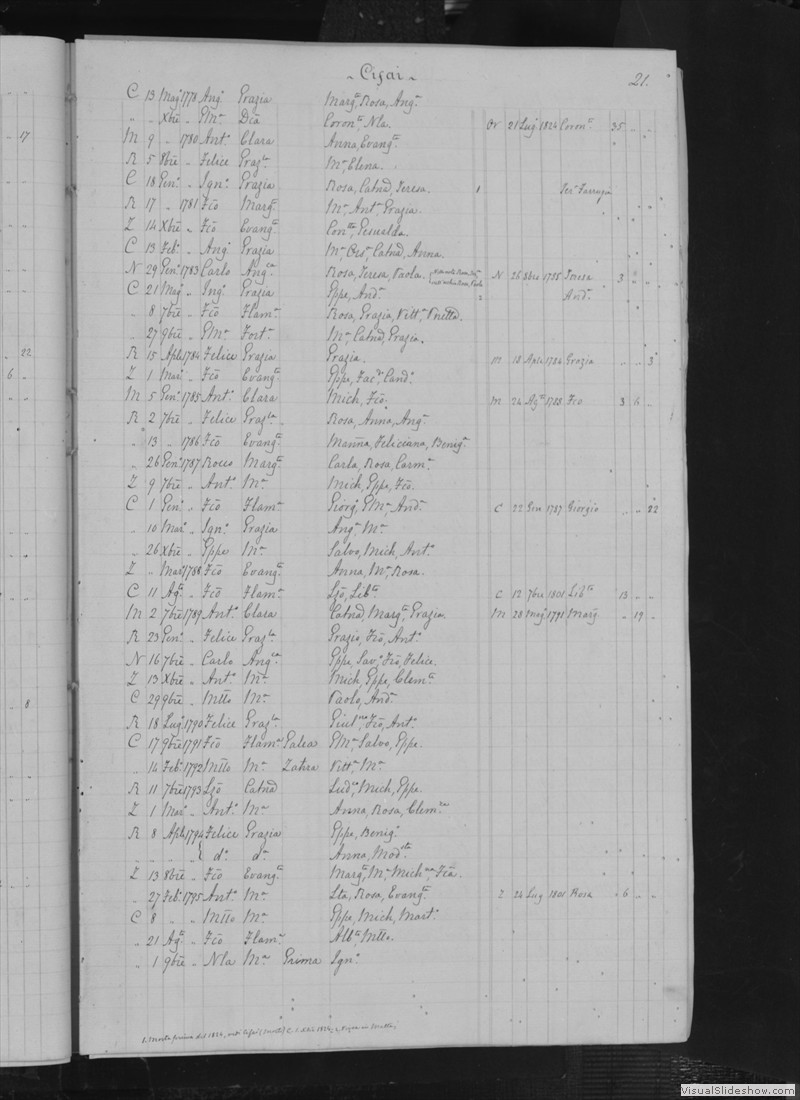 ~ Cifai ~ 21.
C 13 Mag. 1778 Ang. Grazia Marg.a Rosa, Ang.
„ „ Xbre „ Gma Dia Coron.ta Nla. Or 21 Lug. 1824 Coron.ta 35 „ „
M 9 „ 1780 Ant.o Clara Anna, Evang.ta
R 5 8bre „ Felice Graz.la M.a Elena.
C 18 Gen.o „ Ign.o Grazia Rosa, Catnd, Teresa. 1 Ter.a Farrugia
R 17 „ 1781 Fco Marg.a M.a Ant.a Grazia.
Z 14 Xbre „ Fco Evang.ta Con.ta Gesualda.
C 13 Feb.o „ Ang.o Grazia M.a Ors.a Catnd, Anna.
N 29 Gen.o 1783 Carlo Ang.ca Rosa, Teresa, Paola. N 26 8bre 1785 Teresa 3 „ „
C 21 Mag.o „ Ing.o Grazia Gppe, And.a 2 And.a
„ 8 7bre „ Fco Flam.a Rosa, Grazia, Vitt.a Pnetta.
„ 27 9bre „ Gma Fort.a M.a Catnd, Grazia.
R 15 Aple 1784 Felice Grazia Grazia. M 18 Aple 1784 Grazia „ „ 3
Z 1 Mar.o „ Fco Evang.ta Gppe, Fac.do Cand.o
M 5 Gen.o 1785 Ant.o Clara Mich, Fco. M 24 Ag.o 1788 Fco 3 6 „
R 2 7bre „ Felice Graz.la Rosa, Anna, Ang.a
„ 13 „ 1786 Fco Evang.ta Marina, Feliciana, Benig.a
„ 26 Gen.o 1787 Rocco Marg.a Carla, Rosa, Carm.a
Z 9 7bre „ Ant.o M.a Mich, Gppe, Fco.
C 1 Gen.o „ Fco Flam.a Giorg.o Gma, And.a C 22 Gen 1787 Giorgio „ „ 22
„ 10 Mar.o „ Ign.o Grazia Ang.a M.a
„ 26 Xbre „ Gppe M.a Salvo, Mich, Ant.o
Z „ Mar. 1788 Fco Evang.ta Anna, M.a Rosa.
C 11 Ag.o „ Fco Flam.a Lzo, Lib.ta C 12 7bre 1801 Lib.ta 13 „ „
M 2 7bre 1789 Ant.o Clara Catnd, Marg.a Grazia M 28 Mag. 1791 Marg. „ 19 „
R 23 Gen.o „ Felice Graz.la Grazio, Fco, Ant.o
N 16 7bre „ Carlo Ang.ca Gppe, Sav.o Fco, Felice.
Z 13 Xbre „ Ant.o M.a Mich, Gppe, Clem.te
C 29 9bre „ Mtto M.a Paolo, And.a
R 18 Lug.o 1790 Felice Graz.la Giul.no Fco, Ant.o
C 17 9bre 1791 Fco Flam.a Galea Gma Salvo, Gppe.
„ 14 Feb.o 1792 Mtto M.a Zahra Vitt.a M.a
R 11 7bre 1793 Lzo Catnd Lud.co Mich, Gppe.
Z 1 Mar.o „ Ant.o M.a Anna, Rosa, Clem.na
R 8 Aple 1794 Felice Grazia Gppe, Benig.o
„ „ „ „ d.o d.a Anna, Mod.sta
Z 13 8bre „ Fco Evang.ta Marg.a M.a Mich.na Fca.
„ 27 Feb.o 1795 Ant.o M.a Sta, Rosa, Evang.ta Z 24 Lug 1801 Rosa 6 „ „
C 8 „ „ Mtto M.a Gppe, Mich, Mart.o
„ 21 Ag.o „ Fco Flam.a Alb.to Mtto.
„ 1 9bre „ Nla M.a Grima Ign.o
1. Morta prima del 1824
17
22
6
8
VisualSlideshow.com